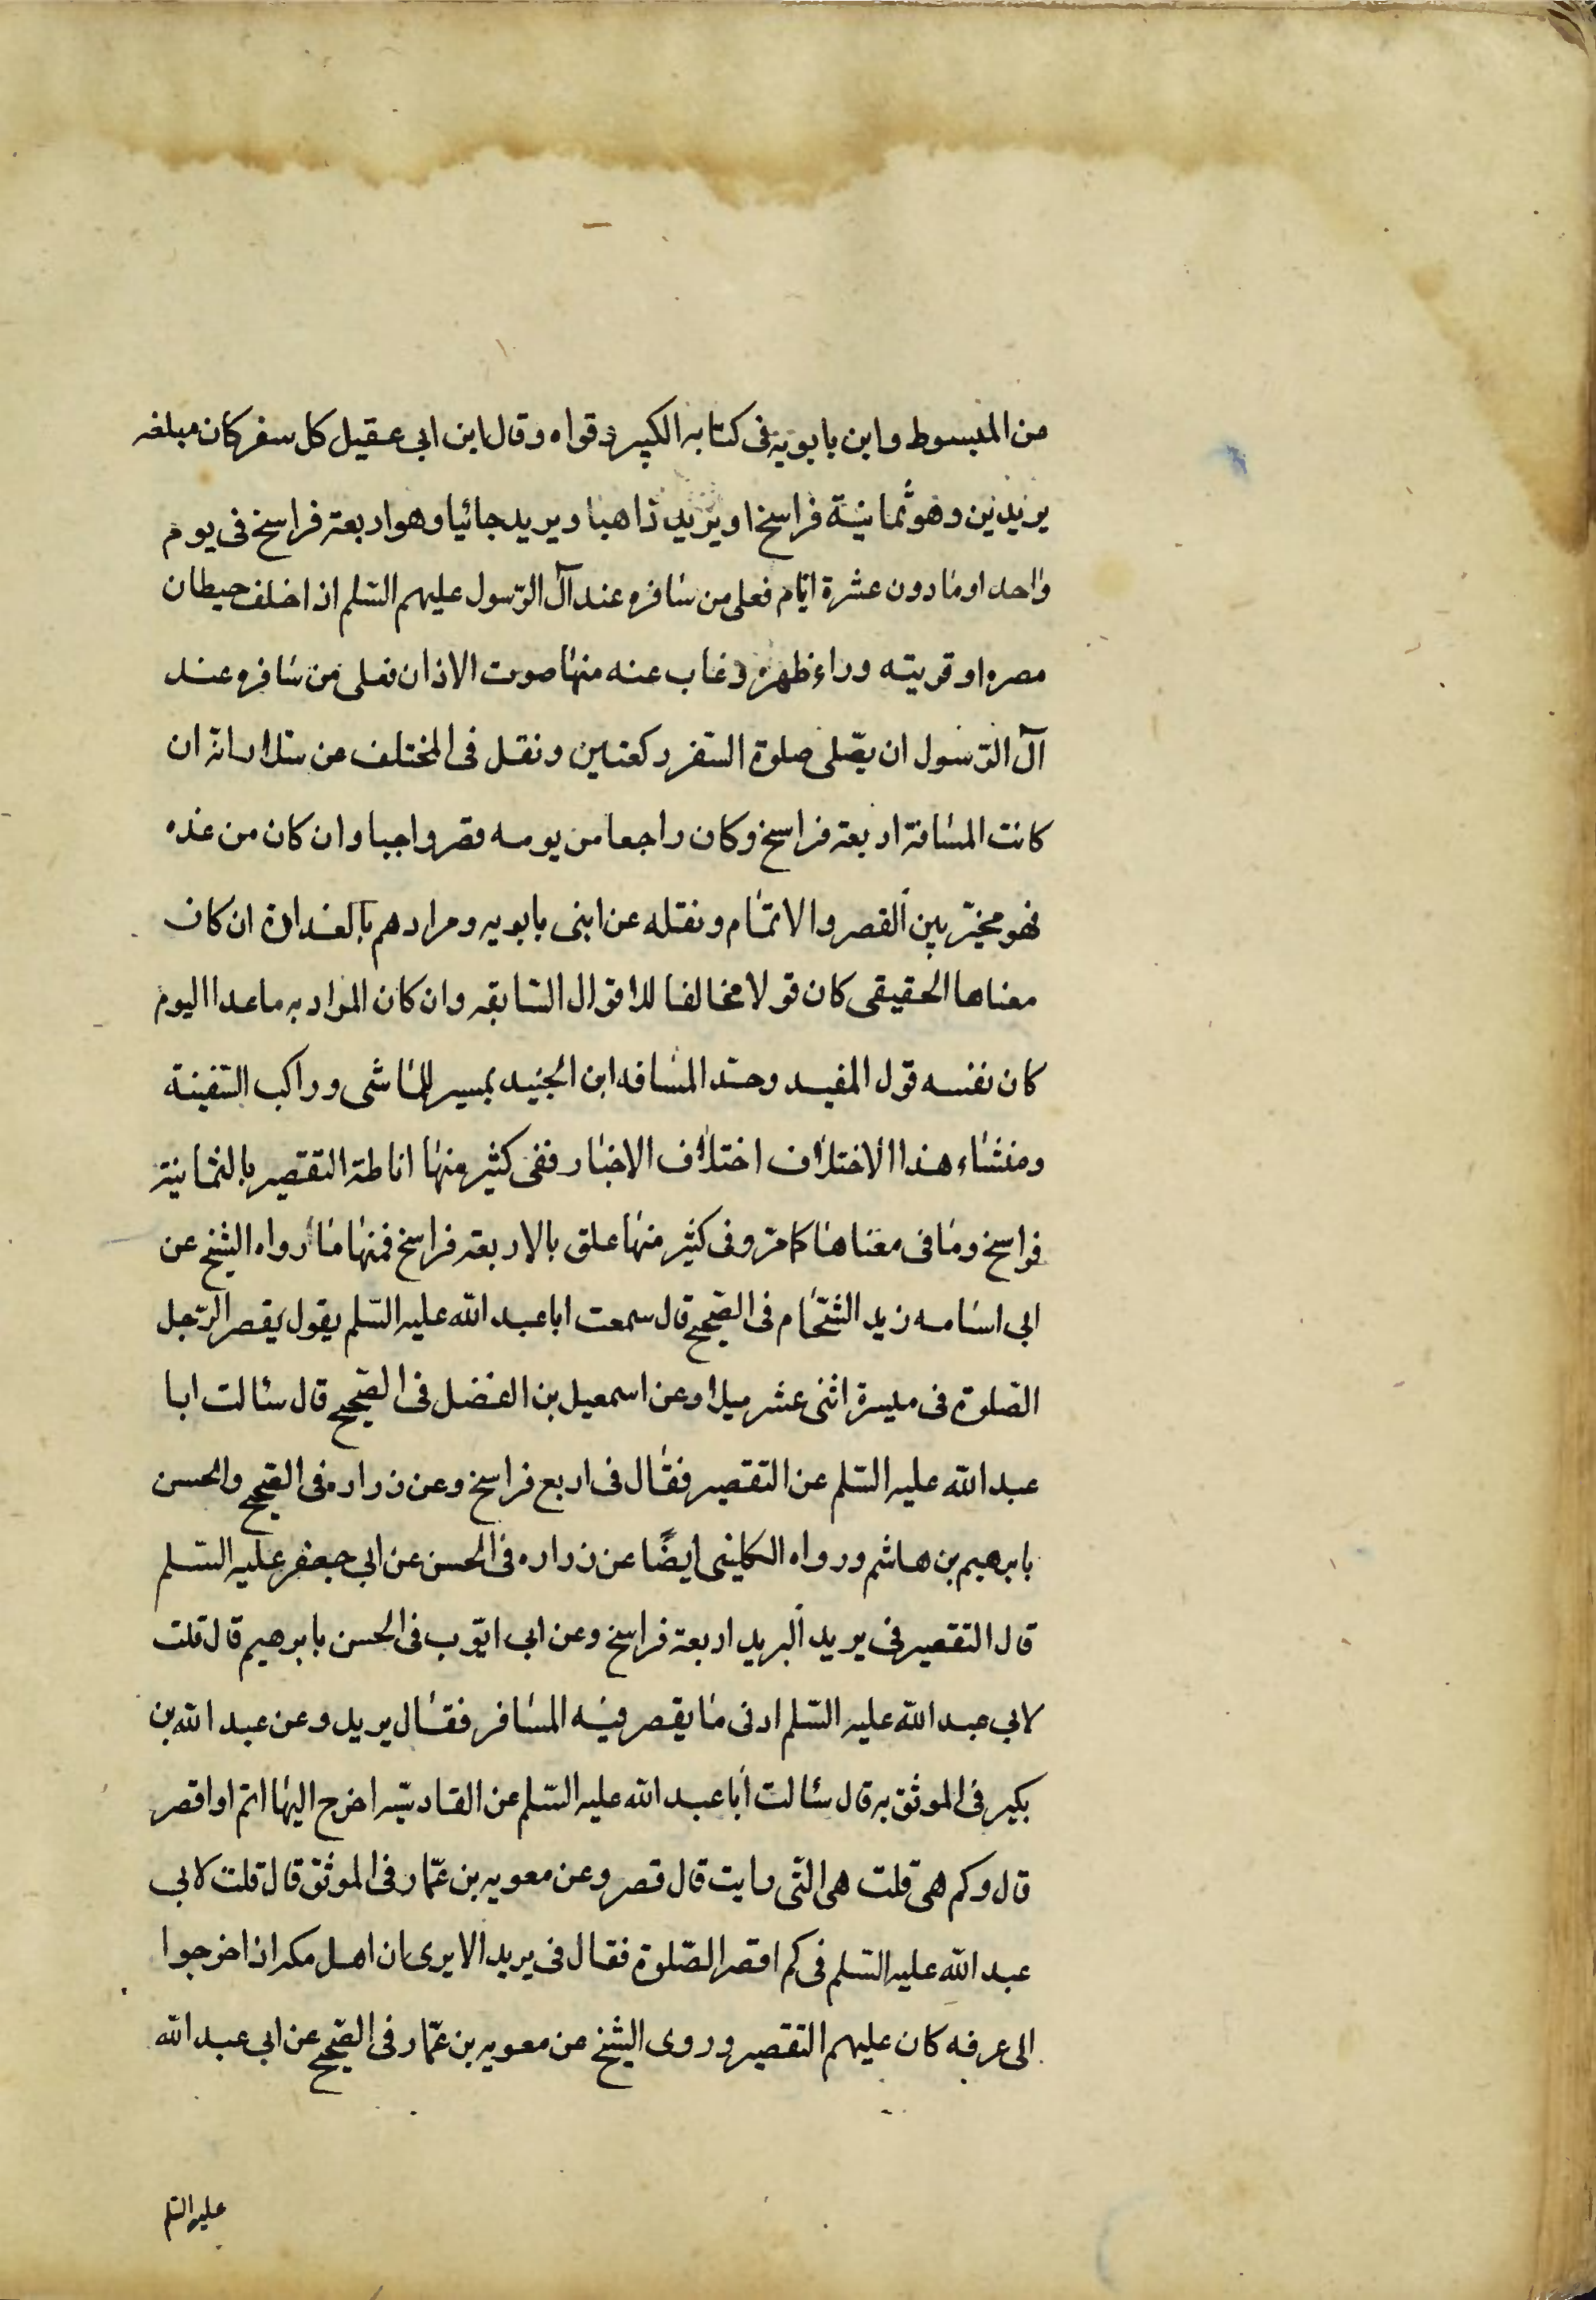 من المبسوط وابن بابويه فى كتابه الكبير وقواه وقال ابن ابى عقيل كل سفر كان مبلغه
بريدين وهو ثمانية فراسخ او بريد ذاهبا وبريد جائيا وهو اربعة فراسخ فى يوم
واحد او ما دون عشرة ايّام فعلى من سافره عند آل الرّسول عليهم السّلم اذا خلف حيطان
مصره او قريته وراء ظهره وغاب عنه منها صوت الاذان فعلى من سافره عند
آل الرّسول ان يصّلى صلوة السّفر ركعتين ونقل فى المختلف عن سلار انه ان
كانت المسافة اربعة فراسخ وكان راجعا من يومه قصر واجبا وان كان من غده
فهو مخيّر بين القصر والاتمام ونقله عن ابنى بابويه ومرادهم بالغداة ان كان
معناها الحقيقى كان قولا مخالفا للاقوال السّابقه وان كان المراد به ما عدا اليوم
كان نفسه قول المفيد وحدّ المسافه ابن الجنيد بمسير الماشى وراكب السّفينة
ومنشاء هذا الاختلاف اختلاف الاخبار ففى كثير منها اناطة التقصير بالثمانية
فراسخ وما فى معناها كما مرّ وفى كثير منها علق بالاربعة فراسخ فمنها ما رواه الشيخ عن
ابى اسامه زيد الشحّام فى الصّحيح قال سمعت ابا عبد الله عليه السّلم يقول يقصر الرّجل
الصّلوة فى مسيرة اثنى عشر ميلا وعن اسمعيل بن الفضل فى الصّحيح قال سئالت ابا
عبد الله عليه السّلم عن التقصير فقال فى اربع فراسخ وعن زراره فى الصّحيح والحسن
بابرهيم بن هاشم ورواه الكلينى ايضًا عن زراره فى الحسن عن ابى جعفر عليه السّلم
قال التقصير فى بريد البريد اربعة فراسخ وعن ابى ايّوب فى الحسن بابرهيم قال قلت
لابى عبد الله عليه السّلم ادنى ما يقصر فيه المسافر فقال بريد وعن عبد الله بن
بكير فى الموثق به قال سئالت أبا عبد الله عليه السّلم عن القادسيّه اخرج اليها اتم او اقصر
قال وكم هى قلت هى الّتى رايت قال قصر وعن معويه بن عمّار فى الموثق قال قلت لابى
عبد الله عليه السّلم فى كم اقصر الصّلوة فقال فى بريد الا يرى ان اهل مكه اذا خرجوا
الى عرفه كان عليهم التقصير وروى الشيخ عن معويه بن عمّار فى الصّحيح عن ابى عبد الله
عليه السّلم